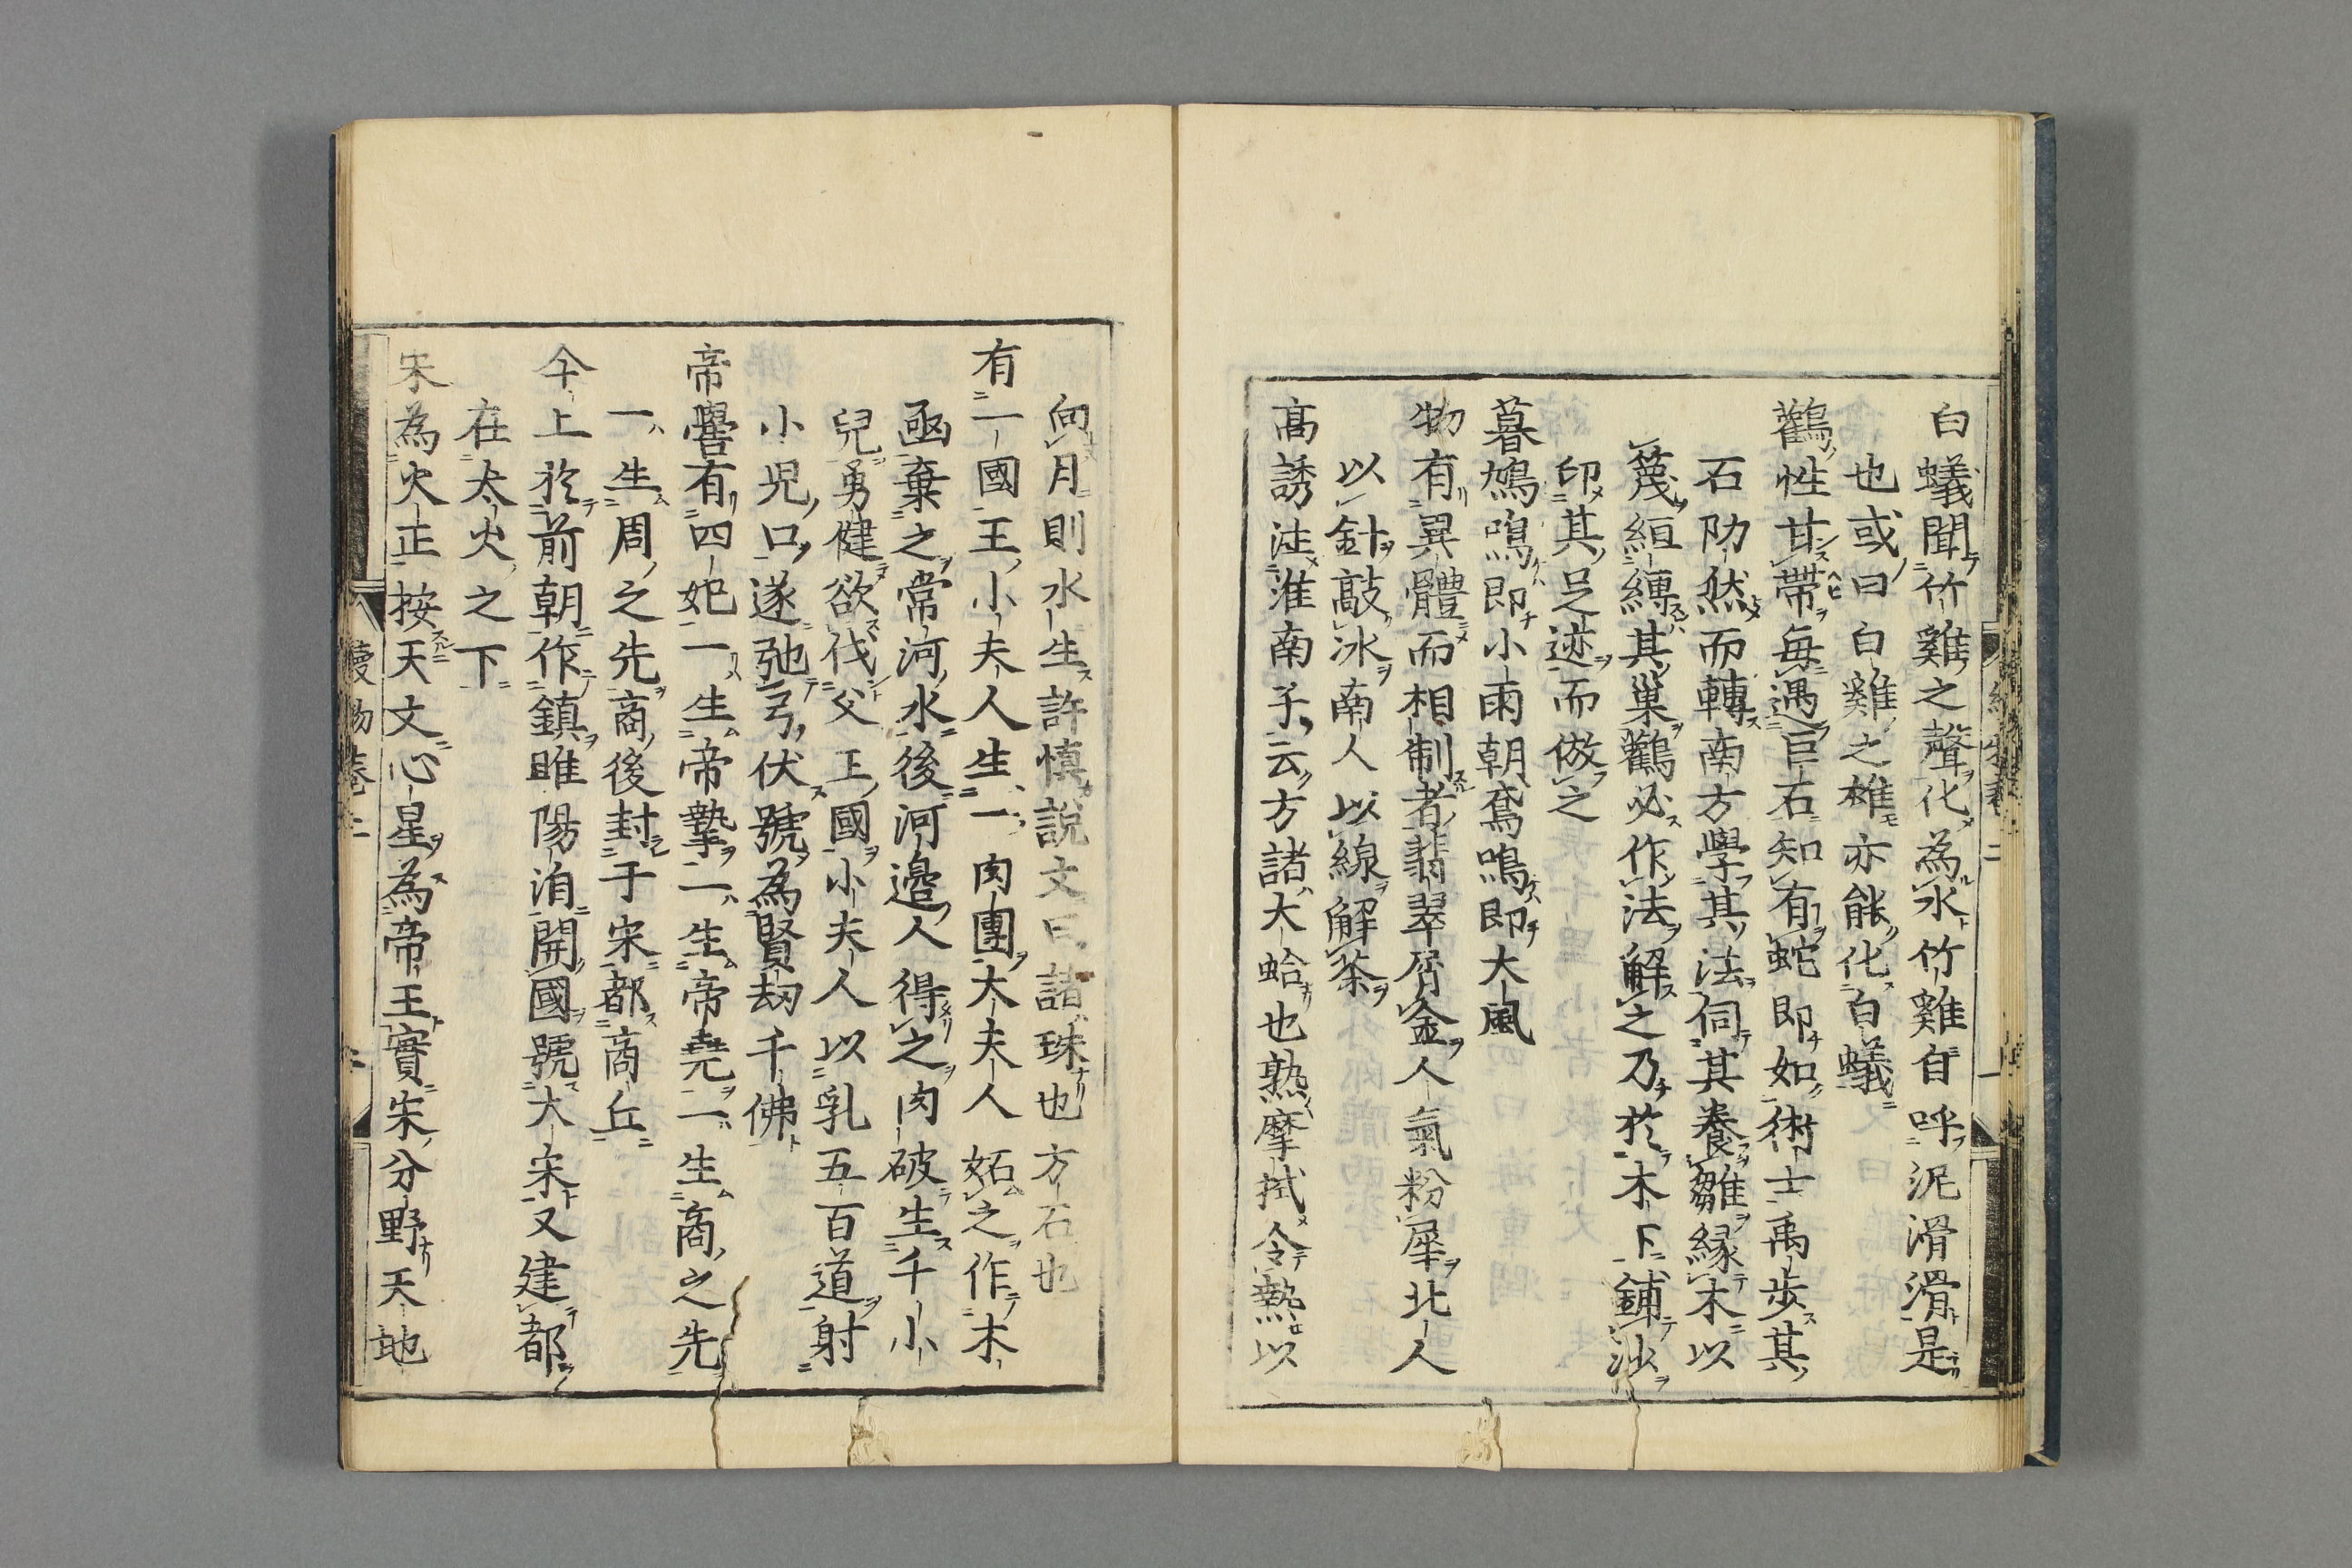 白蟻聞竹雞之聲化為水竹雞自呼泥滑滑是
也或曰白雞之雄亦能化白蟻
鸛性甘帶每遇巨石知有蛇即如術士禹步其
石阞然而轉南方學其法伺其養雛縁木以
篾絙縛其巢鸛必作法解之乃於木下鋪沙
印其足迹而倣之
暮鳩鳴即小雨朝鳶鳴即大風
物有異體而相制者翡翠屑金人氣粉犀北人
以針敲冰南人以線解茶
高誘注淮南子云方諸大蛤也熟摩拭令熱以
向月則水生許慎說文曰諸珠也方石也
有一國王小夫人生一肉團大夫人妬之作木
凾棄之常河水後河邊人得之肉破生千小
兒勇健欲伐父王國小夫人以乳五百道射
小児口遂弛弓伏號為賢劫千佛
帝嚳有四妃一生帝摯一生帝堯一生商之先
一生周之先商後封于宋都商丘
今上於前朝作鎮睢陽洎開國號大宋又建都
在大火之下
宋為火正按天文心星為帝王實宋分野天地